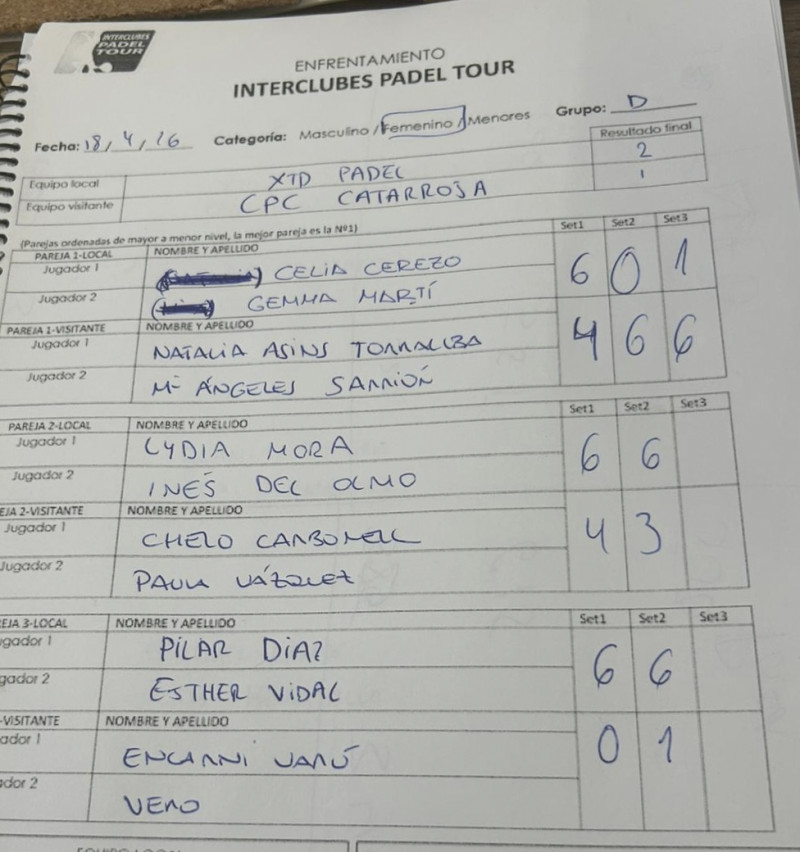 INTERCLUBES
PADEL
TOUR
ENFRENTAMIENTO
INTERCLUBES PADEL TOUR
Fecha: 18/4/26 Categoría: Masculino / Femenino / Menores Grupo: D
Resultado final
Equipo local XTD PADEL 2
Equipo visitante CPC CATARROJA 1
(Parejas ordenadas de mayor a menor nivel, la mejor pareja es la Nº1)
PAREJA 1-LOCAL NOMBRE Y APELLIDO Set1 Set2 Set3
Jugador 1 CELIA CEREZO 6 0 1
Jugador 2 GEMMA MARTÍ
PAREJA 1-VISITANTE NOMBRE Y APELLIDO
Jugador 1 NATALIA ASINS TORRALBA 4 6 6
Jugador 2 Mª ÁNGELES SARRIÓN
PAREJA 2-LOCAL NOMBRE Y APELLIDO Set1 Set2 Set3
Jugador 1 LYDIA MORA 6 6
Jugador 2 INÉS DEL OLMO
EJA 2-VISITANTE NOMBRE Y APELLIDO
Jugador 1 CHELO CARBONELL 4 3
Jugador 2 PAULA VÁZQUEZ
EJA 3-LOCAL NOMBRE Y APELLIDO Set1 Set2 Set3
ugador 1 PILAR DIAZ 6 6
gador 2 ESTHER VIDAL
-VISITANTE NOMBRE Y APELLIDO
ador 1 ENCARNI 0 1
dor 2 VERO